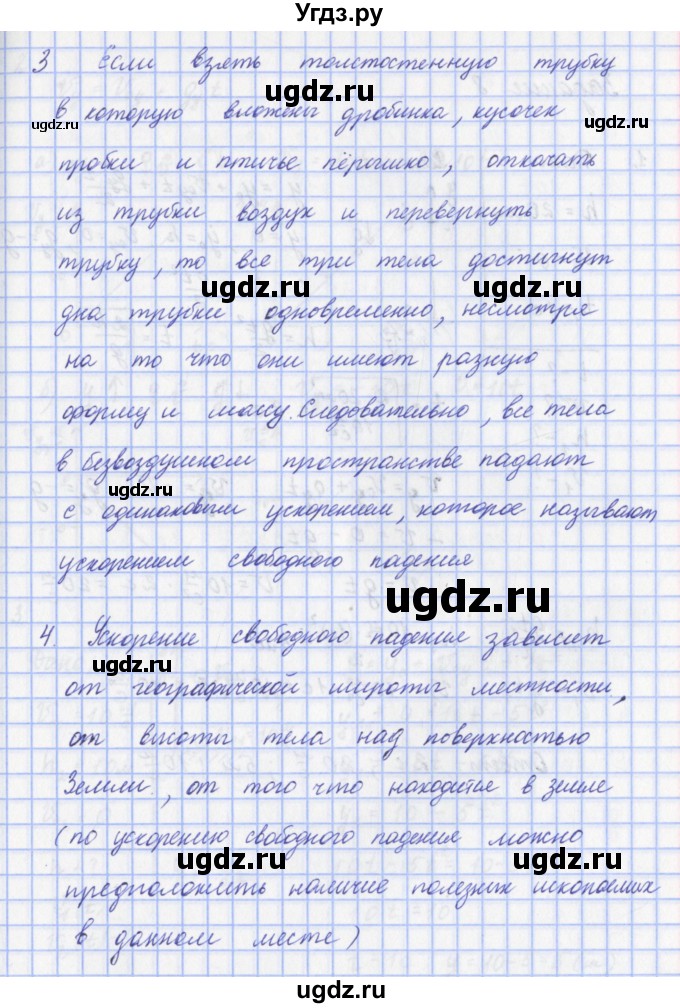 Угдз.ру
3 Если взять толстостенную трубку
в которую вложены дробинка, кусочек
пробки и птичье пёрышко, откачать
из трубки воздух и перевернуть
трубку, то все три тела достигнут
дна трубки одновременно, несмотря
на то что они имеют разную
форму и массу. Следовательно, все тела
в безвоздушном пространстве падают
с одинаковым ускорением, которое называют
ускорением свободного падения
4. Ускорение свободного падения зависит
от географической широты местности,
от высоты тела над поверхностью
Земли, от того что находится в земле
(по ускорению свободного падения можно
предположить наличие полезных ископаемых
в данном месте)
ugdz.ru
ugdz.ru
ugdz.ru
ugdz.ru
ugdz.ru
ugdz.ru
ugdz.ru
ugdz.ru
ugdz.ru
ugdz.ru
ugdz.ru
ugdz.ru